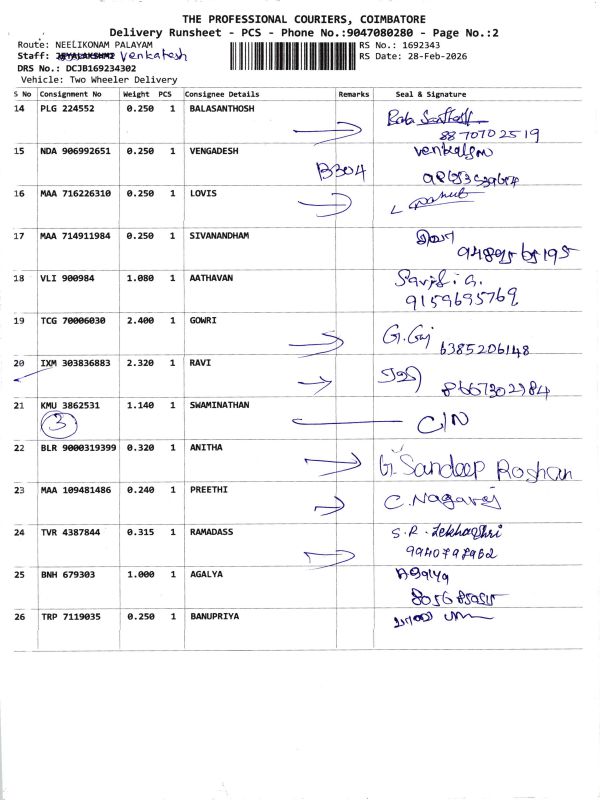 THE PROFESSIONAL COURIERS, COIMBATORE
Delivery Runsheet - PCS - Phone No.:9047080280 - Page No.:2
Route: NEELIKONAM PALAYAM
RS No.: 1692343
Staff: Venkatesh
RS Date: 28-Feb-2026
DRS No.: DCJB169234302
Vehicle: Two Wheeler Delivery
S No Consignment No Weight PCS Consignee Details Remarks Seal & Signature
14 PLG 224552 0.250 1 BALASANTHOSH Bala Santhosh
8870702519
15 NDA 906992651 0.250 1 VENGADESH
B304
16 MAA 716226310 0.250 1 LOVIS
17 MAA 714911984 0.250 1 SIVANANDHAM
18 VLI 900984 1.080 1 AATHAVAN
9159695769
19 TCG 70006030 2.400 1 GOWRI
6385206148
20 IXM 303836883 2.320 1 RAVI
8667302984
21 KMU 3862531 1.140 1 SWAMINATHAN C/N
3
22 BLR 9000319399 0.320 1 ANITHA G. Sandeep Roshan
23 MAA 109481486 0.240 1 PREETHI C. Nagaraj
24 TVR 4387844 0.315 1 RAMADASS S.R. Lekhashri
25 BNH 679303 1.000 1 AGALYA Agalya
26 TRP 7119035 0.250 1 BANUPRIYA